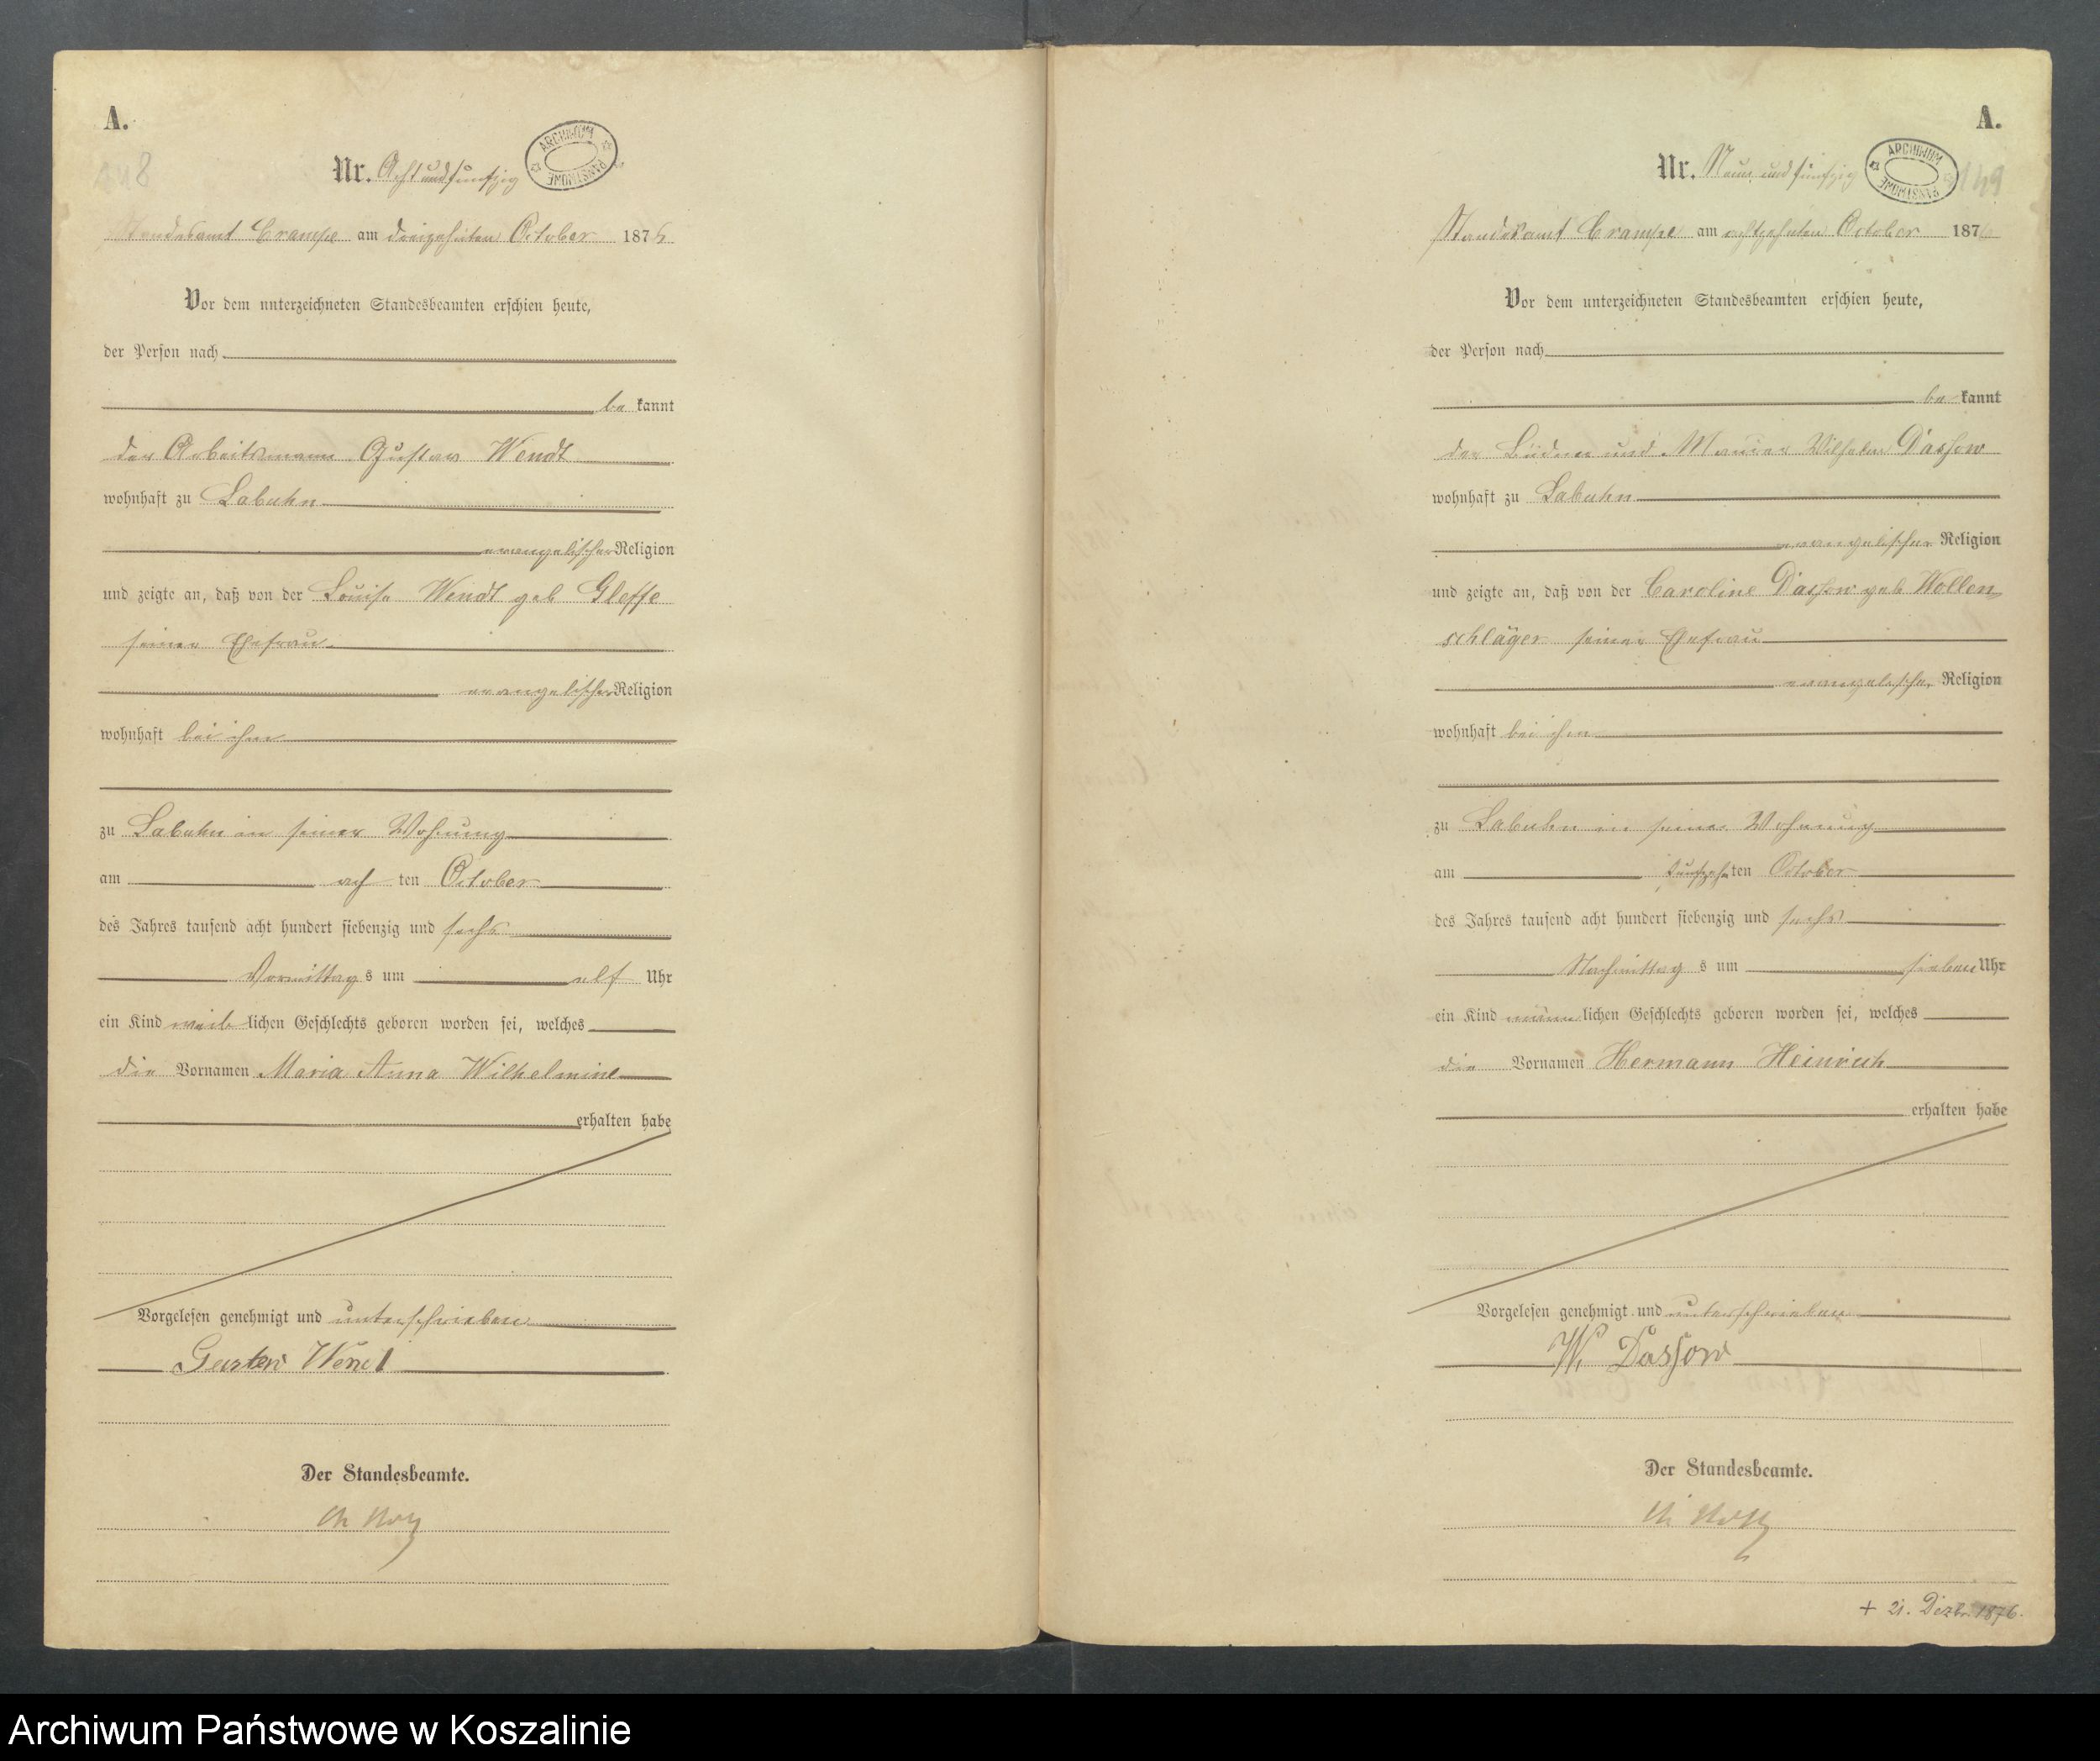 A.
148
Nr. Acht und funfzig
ARCHIWUM PAŃSTWOWE
Standesamt Crampe am dreizehnten October 1876
Vor dem unterzeichneten Standesbeamten erschien heute,
der Person nach
be kannt
der Arbeitsmann Gustav Wendt
wohnhaft zu Labuhn
evangelischer Religion
und zeigte an, daß von der Louise Wendt geb Gleffe
seiner Ehefrau
evangelischer Religion
wohnhaft bei ihm
zu Labuhn in seiner Wohnung
am ach ten October
des Jahres tausend acht hundert siebenzig und sechs
Vormittag s um elf Uhr
ein Kind weib lichen Geschlechts geboren worden sei, welches
die Vornamen Maria Anna Wilhelmine
erhalten habe
Vorgelesen genehmigt und unterschrieben
Gustav Wendt
Der Standesbeamte.
A.
149
Nr. Neun und funfzig
ARCHIWUM PAŃSTWOWE
Standesamt Crampe am achtzehnten October 187
Vor dem unterzeichneten Standesbeamten erschien heute,
der Person nach
be kannt
der Büdner und Maurer Wilhelm Dassow
wohnhaft zu Labuhn
evangelischer Religion
und zeigte an, daß von der Caroline Dassow geb Wollen
schläger seiner Ehefrau
evangelischer Religion
wohnhaft bei ihm
zu Labuhn in seiner Wohnung
am funfzehn ten October
des Jahres tausend acht hundert siebenzig und sechs
Nachmittag s um sieben Uhr
ein Kind männ lichen Geschlechts geboren worden sei, welches
die Vornamen Hermann Heinrich
erhalten habe
Vorgelesen genehmigt und unterschrieben
W. Dassow
Der Standesbeamte.
+ 21. Dezbr. 1876.
Archiwum Państwowe w Koszalinie